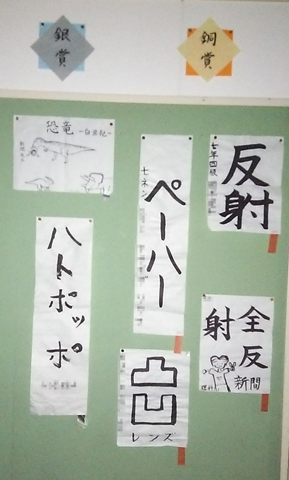 銀賞
銅賞
恐竜
~白亜紀~
ペーハー
七ネン
反射
七年四組
ハトポッポ
全反射
新聞
凸凹
レンズ